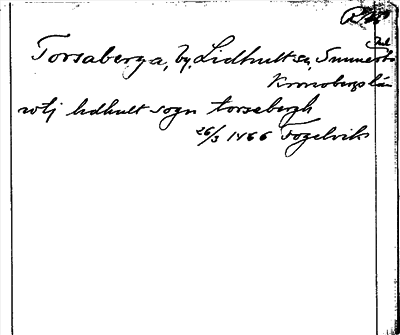 Torsaberga, by, Lidhult sn, Sunnerbo
hd
Kronobergs län
wtj lidhult sogn torsabergh
26/3 1466 Fogelvik